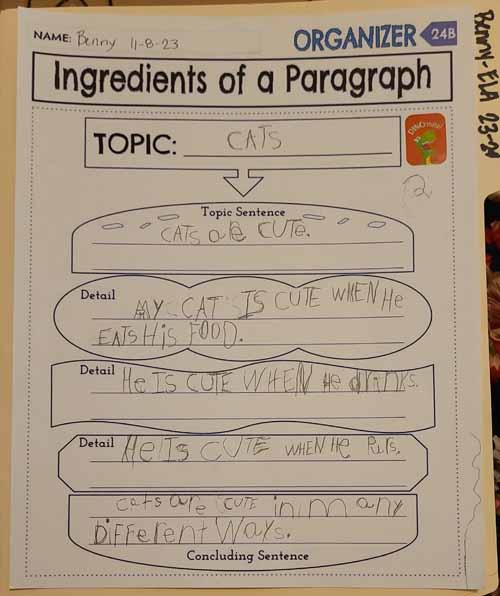 NAME: Benny 11-8-23
ORGANIZER 24B
Ingredients of a Paragraph
TOPIC: CATS
2
Topic Sentence
CATS are CUTe.
Detail
MY CAT IS CUTE WHEN He
EATS HiS FOOD.
Detail
He IS CUTE WHEN He drinks.
Detail
He IS CUTE WHEN He Purs.
Cats are CUTE in many
DiFFerent Ways.
Concluding Sentence
Benny-ELA 23-24